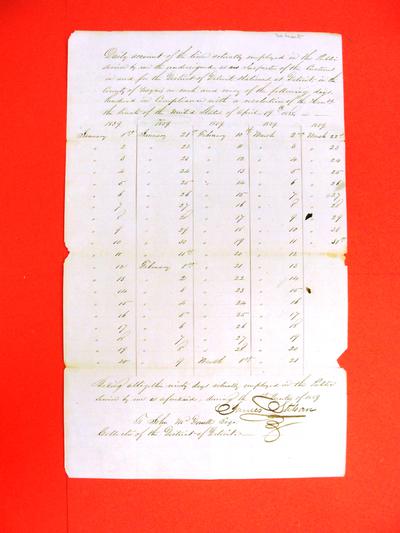 Daily account of the time actually employed in the Public
Service by me the undersigned, as an Inspector of the Customs
in and for the District of Detroit Stationed at Detroit in the
County of Wayne on each and every of the following days
in Compliance with a resolution of the
the Senate of the United States of April 19th
1859 1859 1859 1859 1859
January 1st January 21st February 10th March 2nd March 22nd
" 2 " 22 " 11 " 3 " 23
" 3 " 23 " 12 " 4 " 24
" 4 " 24 " 13 " 5 " 25
" 5 " 25 " 14 " 6 " 26
" 6 " 26 " 15 " 7 " 27
" 7 " 27 " 16 " 8 " 28
" 8 " 28 " 17 " 9 " 29
" 9 " 29 " 18 " 10 " 30
" 10 " 30 " 19 " 11 " 31st
" 11 " 31st " 20 " 12
" 12 February 1st " 21 " 13
" 13 " 2 " 22 " 14
" 14 " 23 " 15
" 15 " 4 " 24 " 16
" 16 " 5 " 25 " 17
" 17 " 6 " 26 " 18
" 18 " 7 " 27 " 19
" 19 " 8 " 28 " 20
" 20 " 9 March 1st " 21
Being altogether ninety days actually employed in the Public
Service by me as aforesaid, during the Quarter of 1859
James
To John Mc Esqr
Collector of the District of Detroit